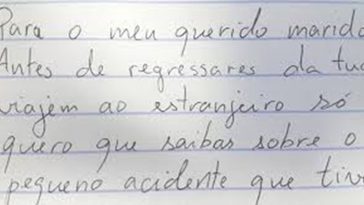 Para o meu querido marido
Antes de regressares da tua
viajem ao estranjeiro só
quero que saibas sobre o
pequeno acidente que tive